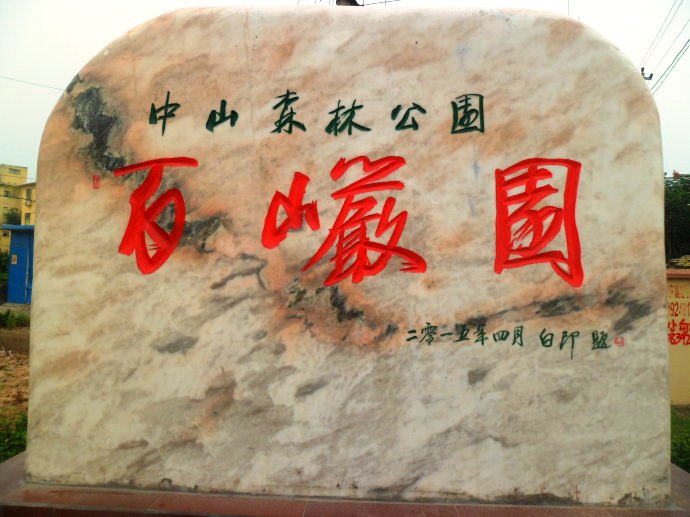 中山森林公園
百巖園
二零一五年四月 白印 题